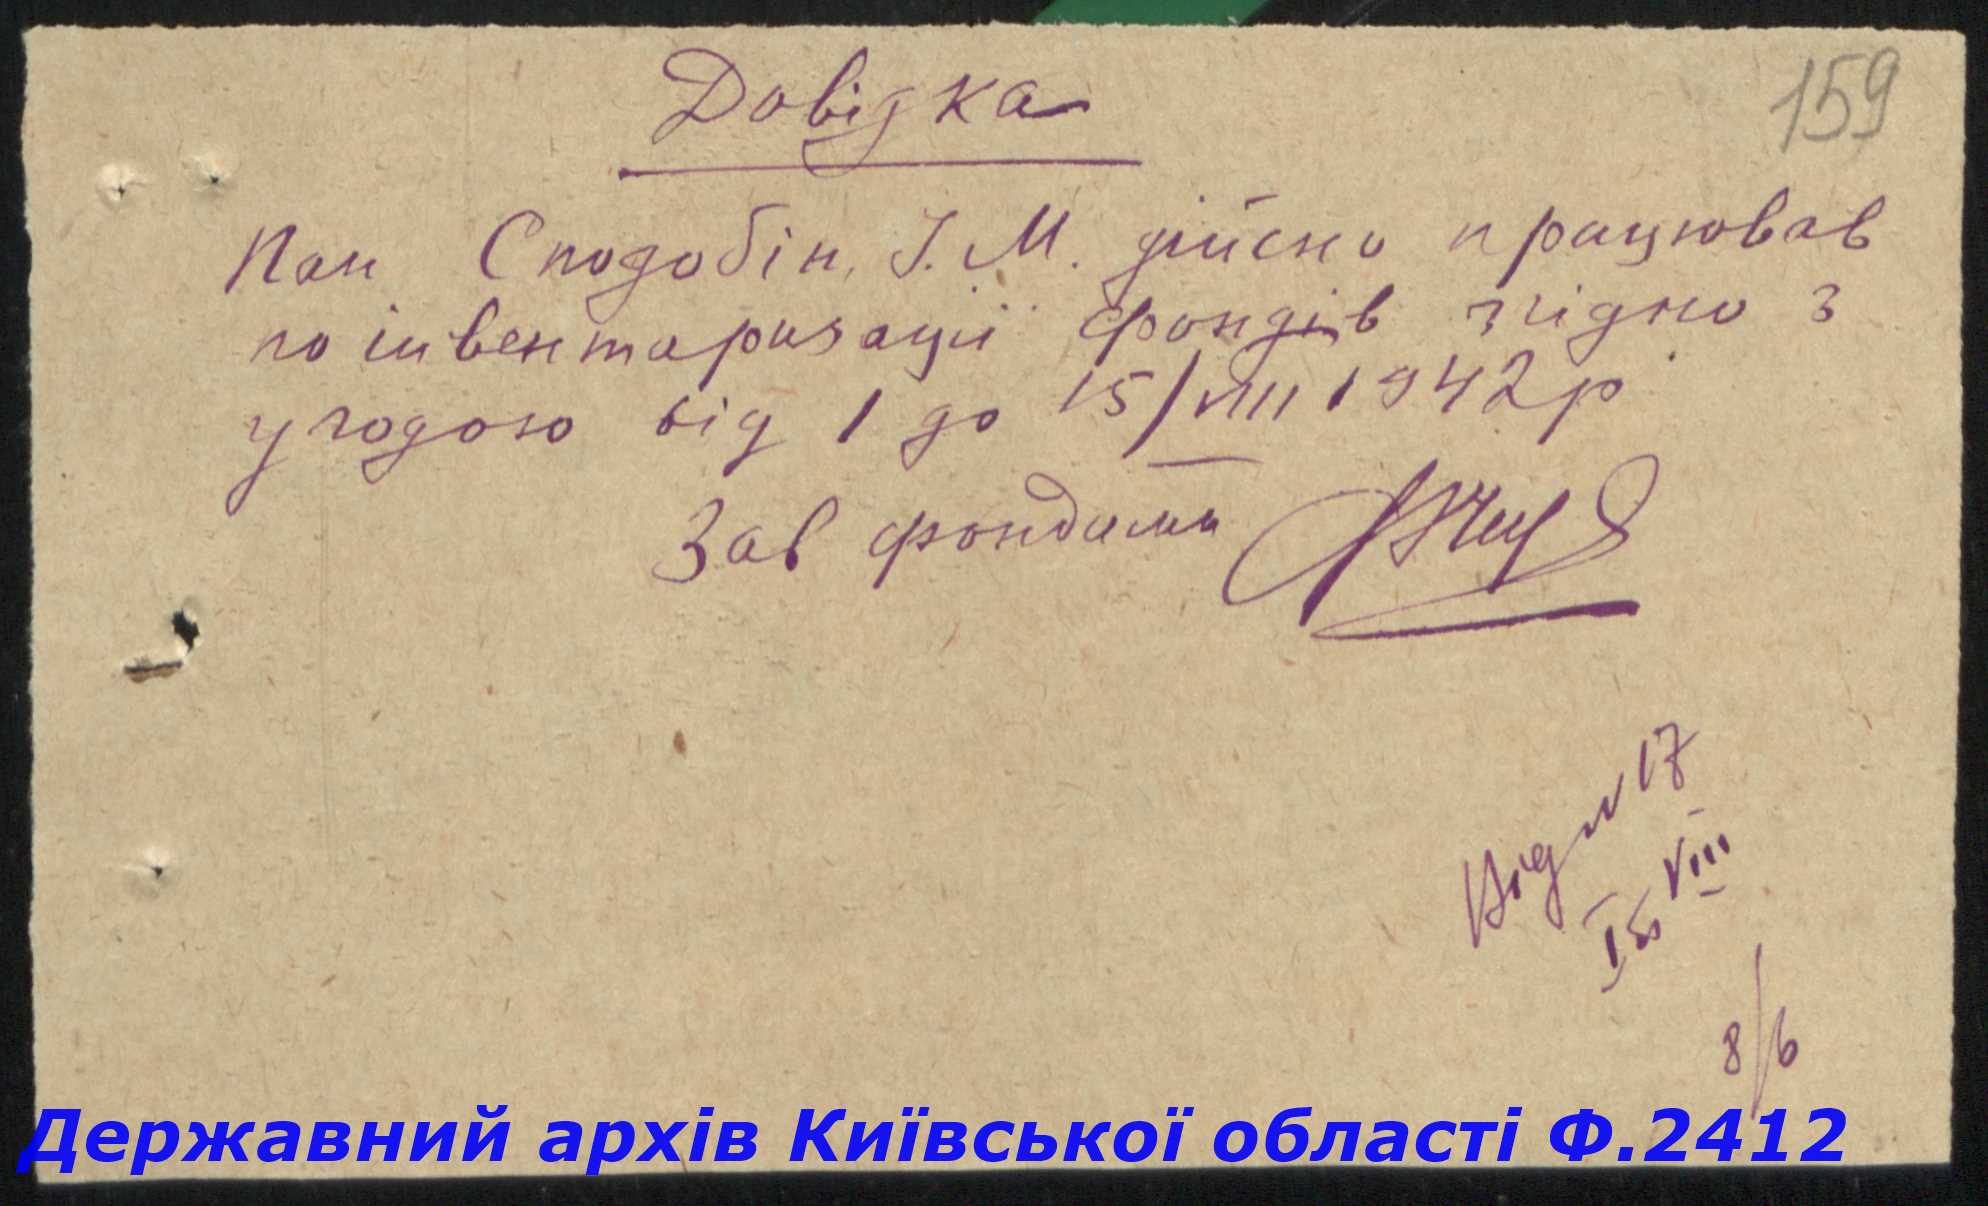 159
Довідка
Пан Сподобін, І. М. дійсно працював
по інвентаризації фондів згідно з
угодою від 1 до 15/VIII 1942р
Зав фондами
17
15 VIII
8/6
Державний архів Київської області Ф.2412